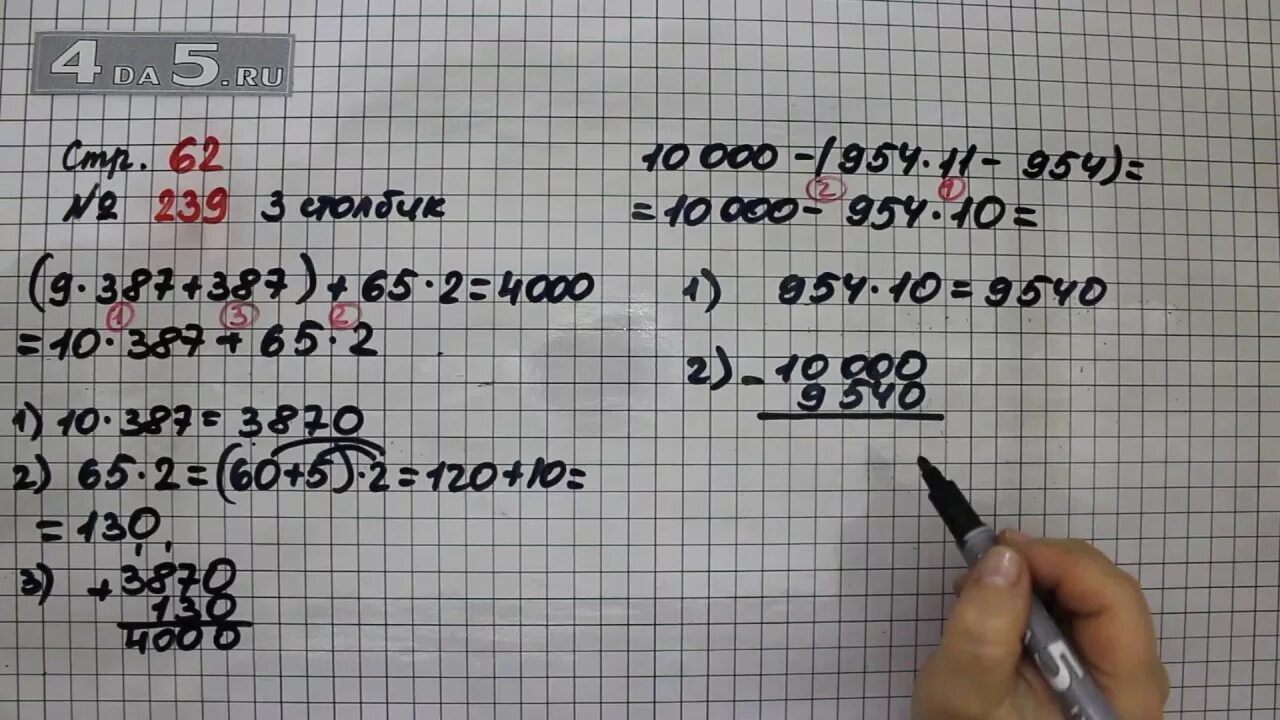 4DA5.RU
Стр. 62
№ 239 3 столбик
(9·387+387)+65·2=4000
① ③ ②
=10·387+65·2
1) 10·387=3870
2) 65·2=(60+5)·2=120+10=
=130
3) +3870
130
4000
10 000-(954·11-954)=
② ①
=10 000-954·10=
1) 954·10=9540
2) -10 000
9540
5